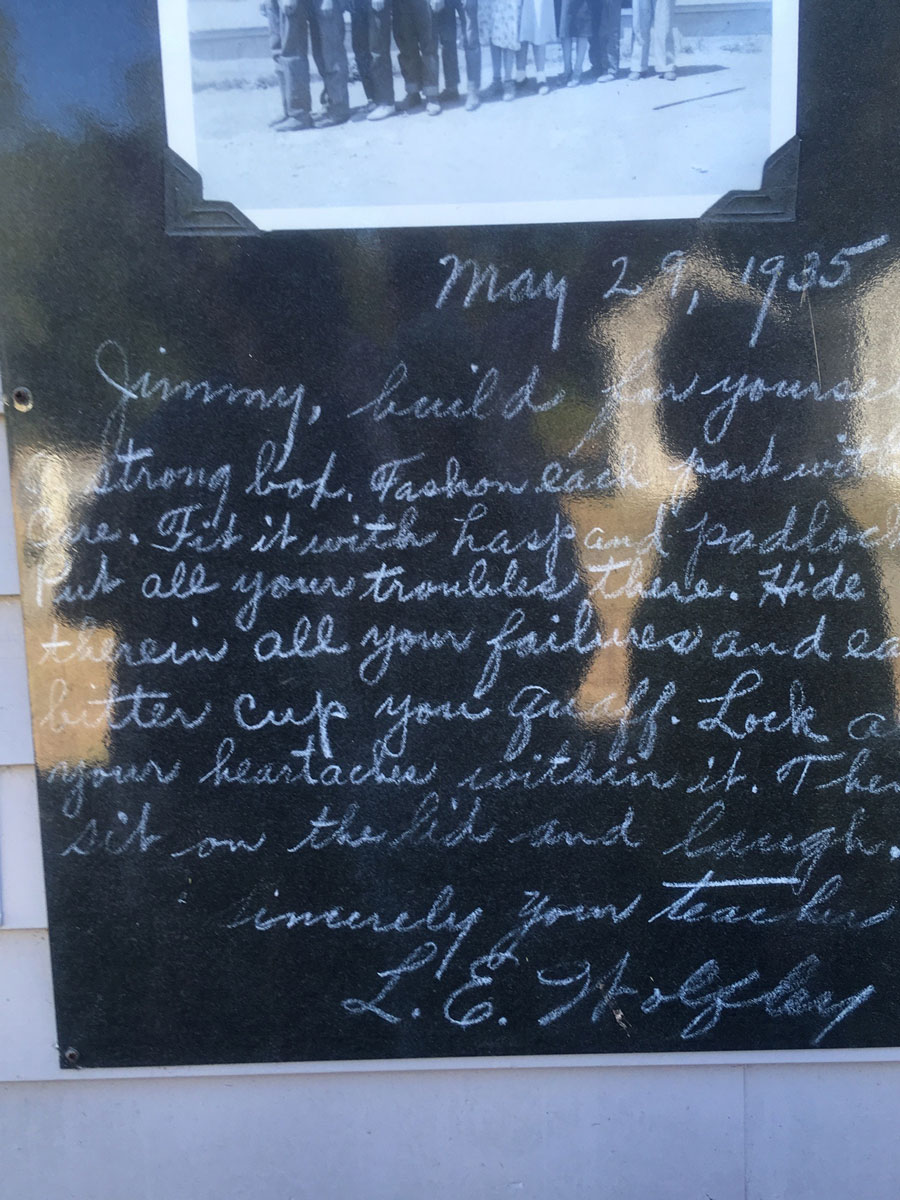 May 29, 1935
Jimmy, build for yourself
a strong box. Fashion each part with
Care. Fit it with hasp and padlock
Put all your troubles there. Hide
therein all your failures and ea
bitter cup you quaff. Lock a
your heartaches within it. Then
sit on the lid and laugh.
Sincerely your teacher
L. E.